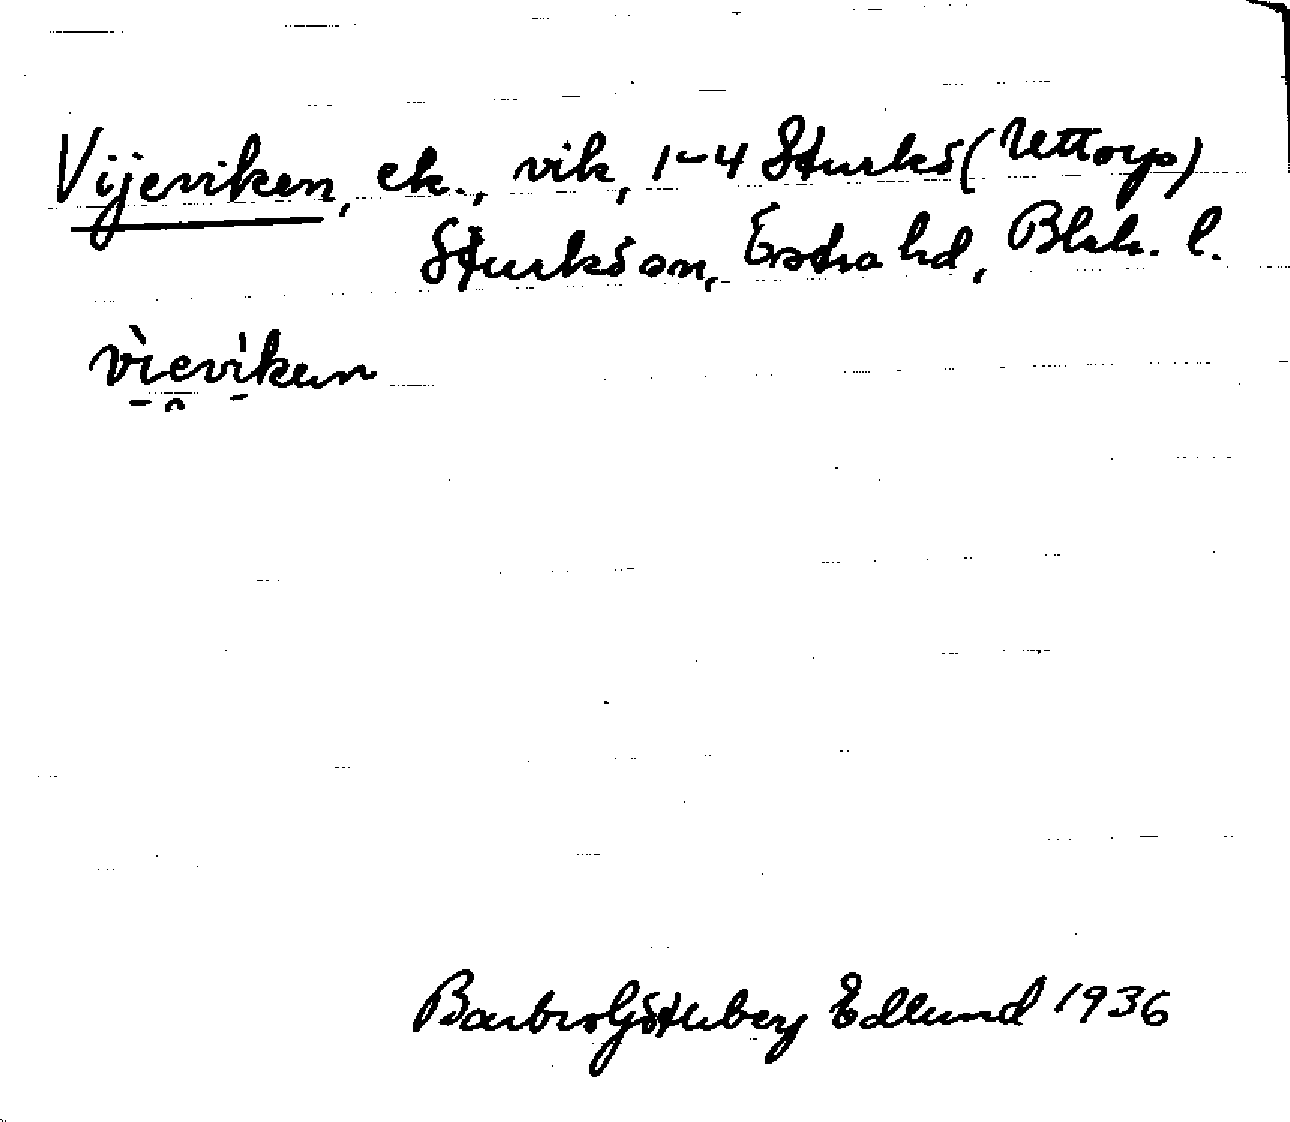 Vijeviken, ek., vik, 1-4 Sturkö (Uttorp)
Sturkö sn, Östra hd, Blek. l.
vìevíken
Barbro Götlberg Edlund 1936